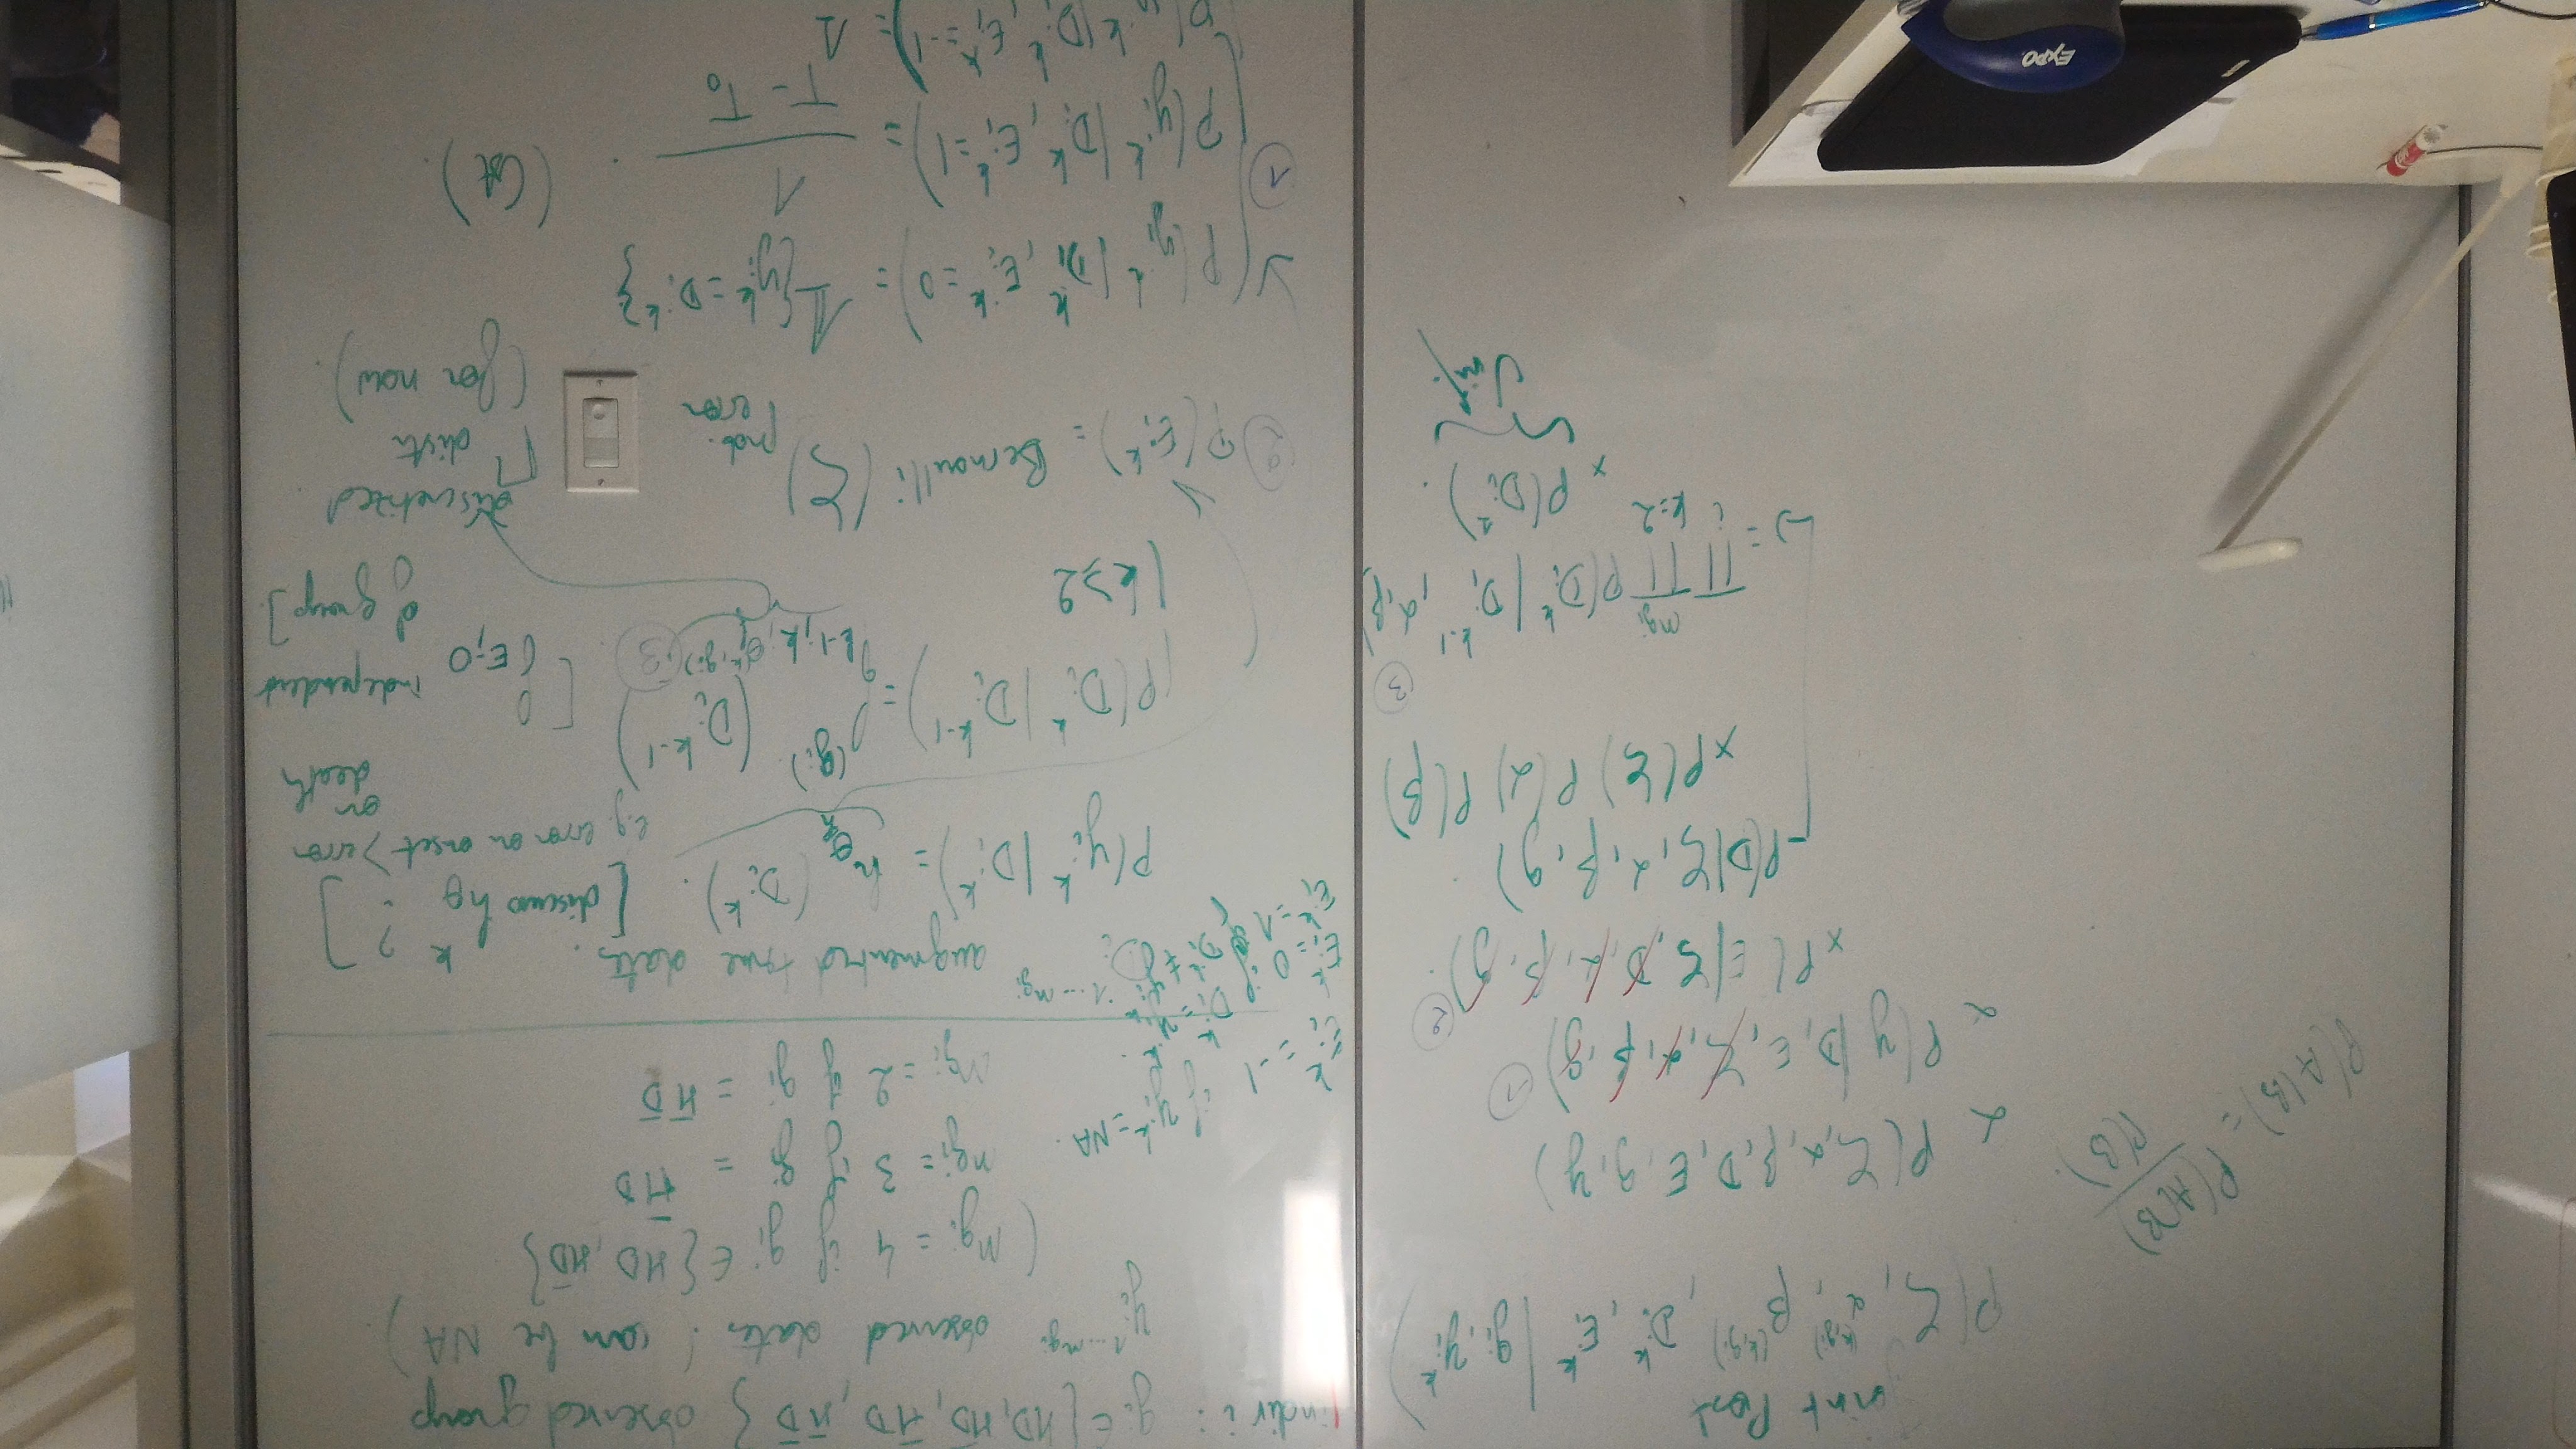 Joint Post
P(ζ, α^(k,gi), β^(k,gi), Di^k, Ei^k | gi, yi^k)
P(A|B) = P(A∩B) / P(B).
∝ P(ζ, α, β, D, E, g, y)
∝ P(y | D, E, ζ, α, β, g) ①
× P(E | ζ, D, α, β, g). ②
P(D | ζ, α, β, g).
× P(ζ) P(α) P(β)
③
↳ = ∏_i ∏_{k=2}^{n_gi} P(Di^k | Di^{k-1}, α, β)
× P(Di^1).
Unif.
indiv i : gi ∈ {HD, HD̄, H̄D, H̄D̄} observed group
yi^{1...n_gi} observed dates (can be NA).
(n_gi = 4 if gi ∈ {HD, HD̄}
n_gi = 3 if gi = H̄D
n_gi = 2 if gi = H̄D̄
Ei^k = -1 if yi^k = NA.
Ei^k = 0 if Di^k = yi^k.
Ei^k = 1 if Di^k ≠ yi^k
Di^{1...n_gi} augmented true dates.
P(yi^k | Di^k) = h_θk (Di^k). [discuss h_θ^k ?]
e.g. error on onset > error
on
death
P(Di^k | Di^{k-1}) = f^(gi)_{k-1;k, θ^(k,gi)} (Di^{k-1}) ③ . [f_{E;O} independent
of group].
k ≥ 2
discretized
Γ distr
(for now).
② P(Ei^k) = Bernoulli (ζ) prob.
error
P(yi^k | Di^k, Ei^k = 0) = 𝟙{yi^k = Di^k}
① P(yi^k | Di^k, Ei^k = 1) = 1 / (T - T0) . (Cst).
P(yi^k | Di^k, Ei^k = -1) = 1
EXPO